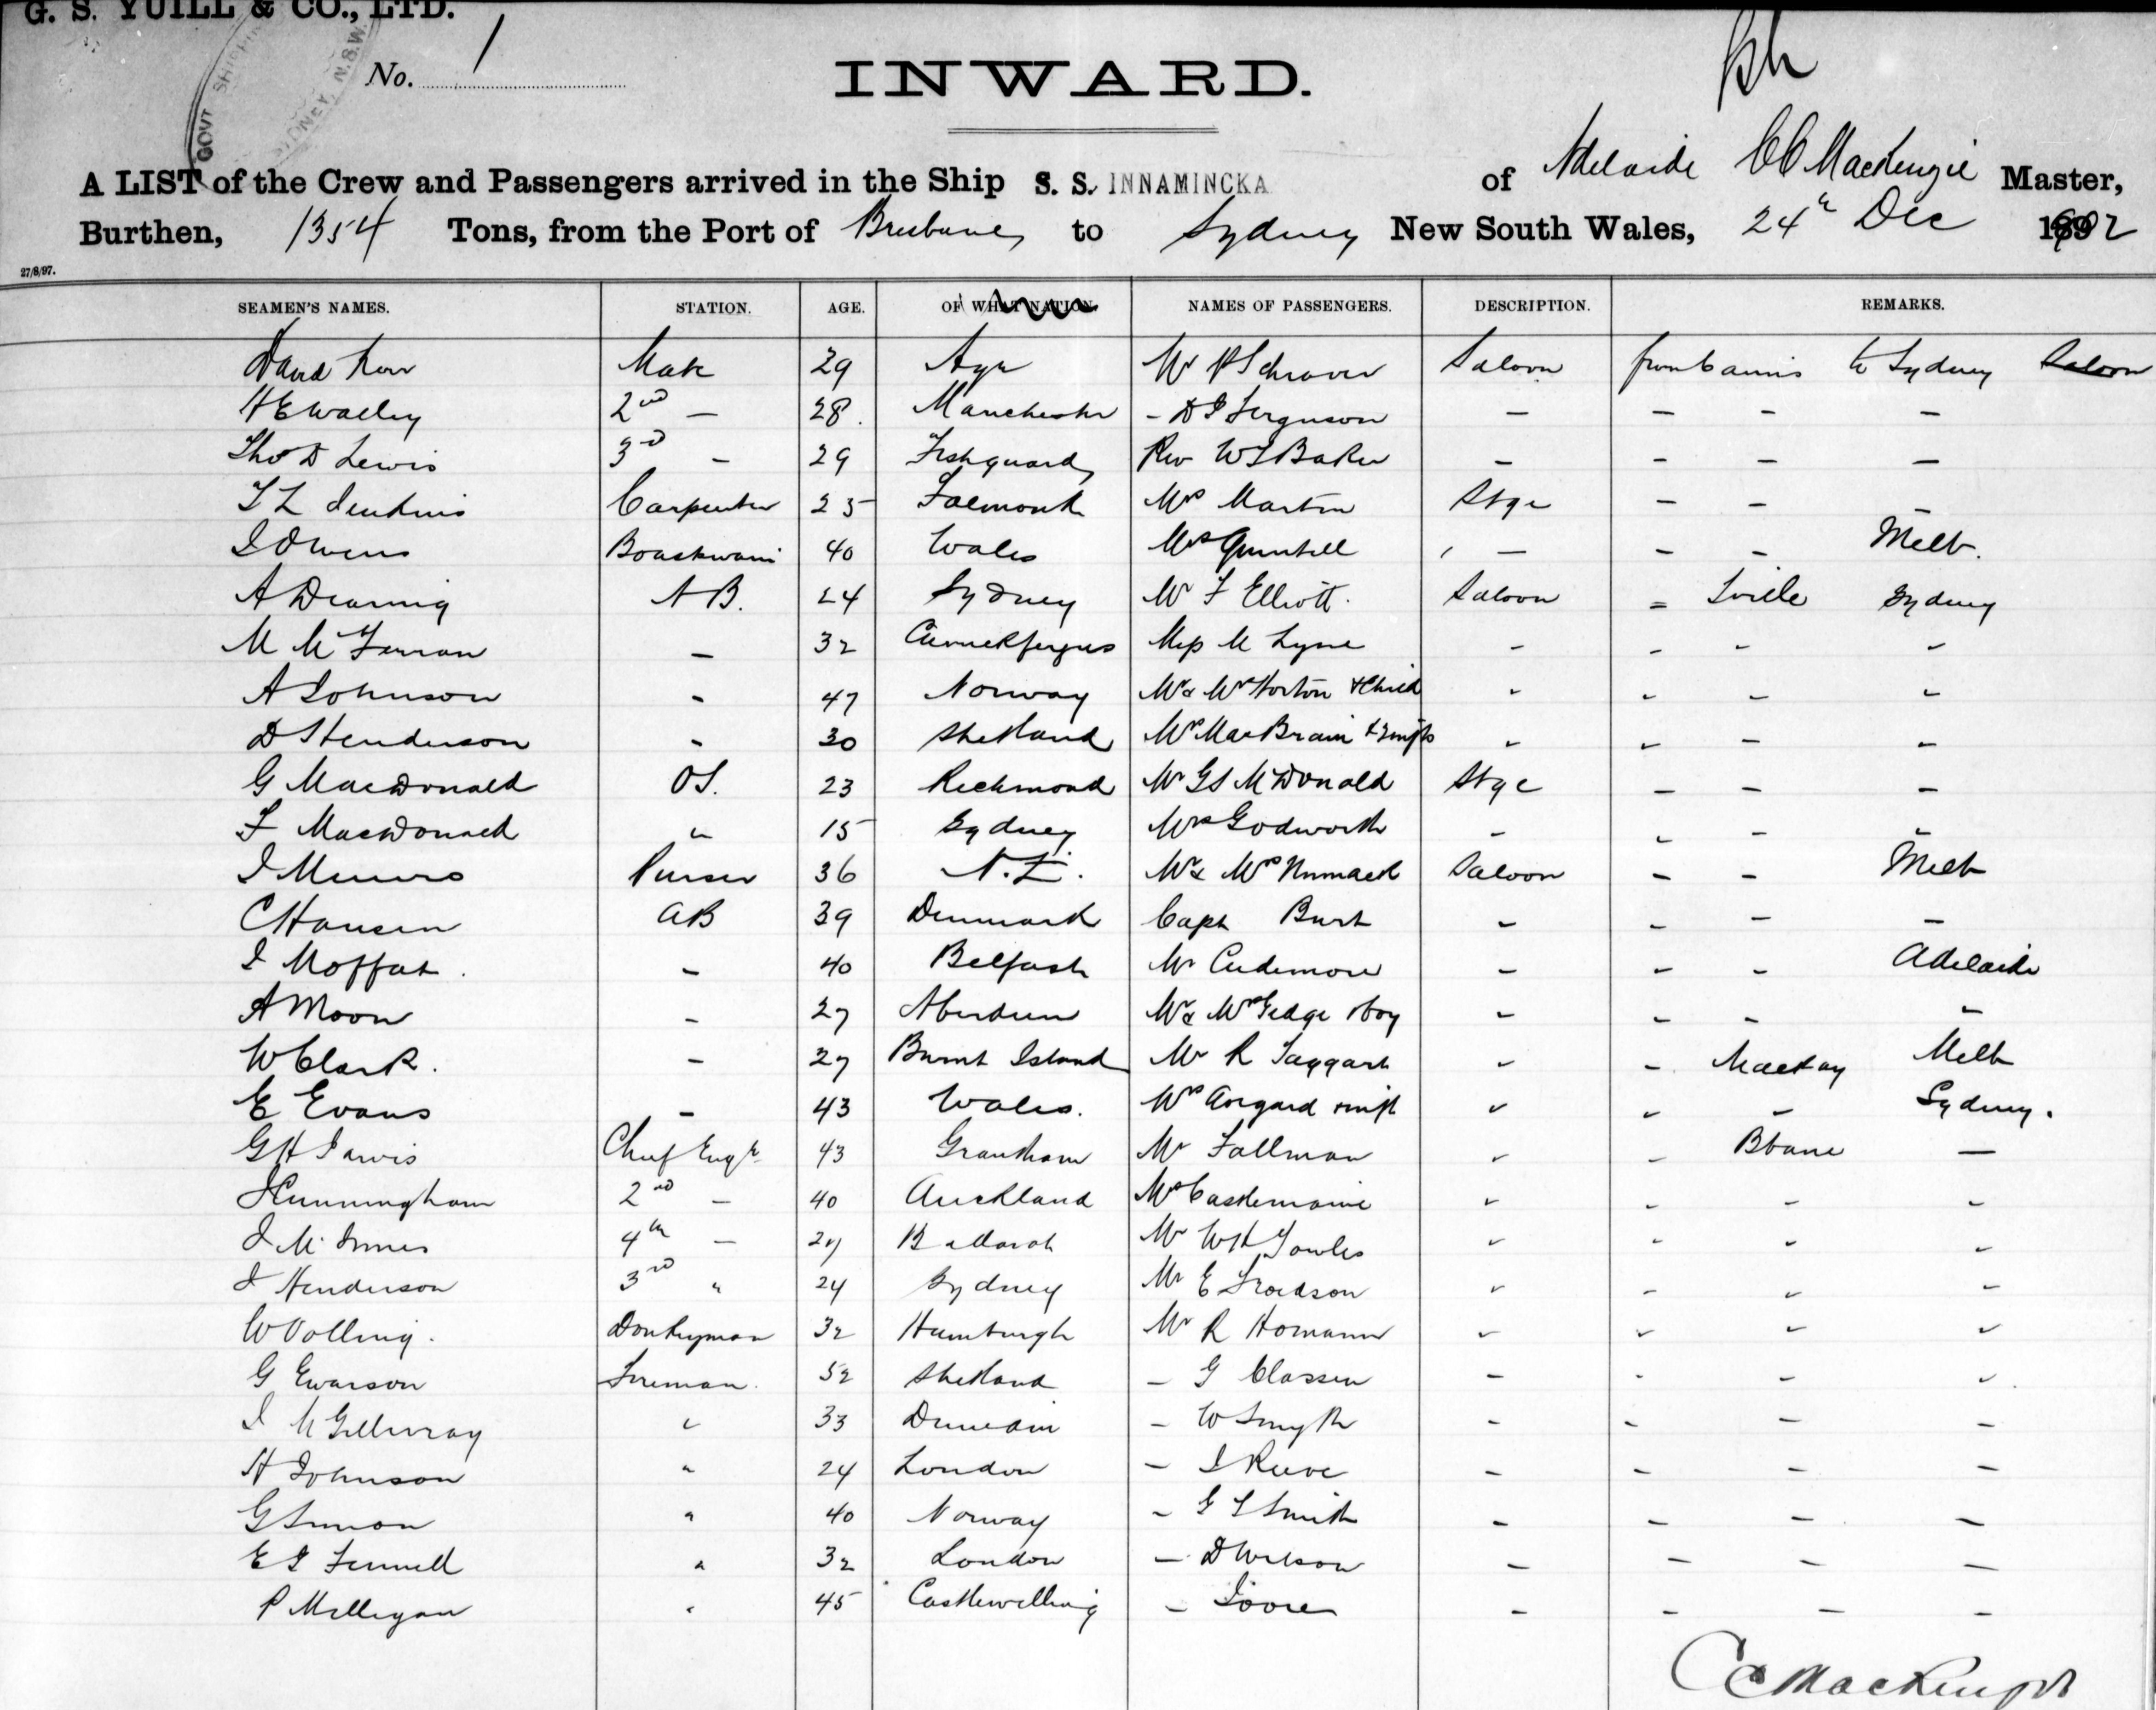 G. S. YUILL & CO., LTD.
GOVT SHIPPIN SYDNEY, N.S.W.
No. 1
INWARD.
A LIST of the Crew and Passengers arrived in the Ship S. S. INNAMINCKA of Adelaide CC MacKenzie Master,
Burthen, 1354 Tons, from the Port of Brisbane to Sydney New South Wales, 24th Dec 1902
27/8/97.
SEAMEN'S NAMES. STATION. AGE. OF WHAT NATION. NAMES OF PASSENGERS. DESCRIPTION. REMARKS.
David Kerr Mate 29 Ayr Mr Saloon from Cairns to Sydney Saloon
H E Walley 2nd — 28. Manchester – Ferguson — — — —
Thos D Lewis 3rd — 29 Fishguard Rev W Baker — — — —
T L Jenkins Carpenter 25 Falmouth Mrs Martin Stge — — —
J Owens 40 Wales Mrs — — — Melb.
A Dearing A B. 24 Sydney Mr F Elliott. Saloon = Tville Sydney
M McFerran — 32 Carrickfergus Miss M Lyne - - - -
A Johnson - 47 Norway Mr & Mrs Horton & Child - - - -
D Henderson - 30 Shetland Mrs MacBrain & 2 infts - - - -
G MacDonald OS. 23 Richmond Mr G S McDonald Stge — — —
F MacDonald " 15 Sydney Mrs Godworth - - - -
J Munro Purser 36 N.Z. Mr & Mrs Saloon — — Melb
C Hansen AB 39 Denmark Capt Burt - - - -
J Moffat. - 40 Belfast Mr Cudmore - - - Adelaide
A Moon - 27 Aberdeen Mr & Mrs Gedge & boy - - - -
W Clark. - 27 Burnt Island Mr R Taggart - - Mackay Melb
E Evans - 43 Wales. Mrs & inft - - - Sydney.
G H Jarvis Chief Engr 43 Grantham Mr Fallman - - Bbane —
Cunningham 2nd — 40 Auckland Mrs Castlemaine - - - -
J McInnes 4th — Ballarat Mr W H Towles - - - -
J Henderson 3rd " 24 Sydney Mr E - - - -
W Volling. Donkeyman 32 Hamburgh Mr R Homann - - - -
G Ewarson Fireman. 52 Shetland – G Classen - - - -
J McGillivray " 33 Dunedin – W Smyth - - - -
H Johnson " 24 London – J Reeve - - - -
G " 40 Norway – G S Smith - - - -
E G Fennell " 32 London – D Wilson - - - -
P Milligan " 45 Castlewelling – - - - -
CC MacKenzie